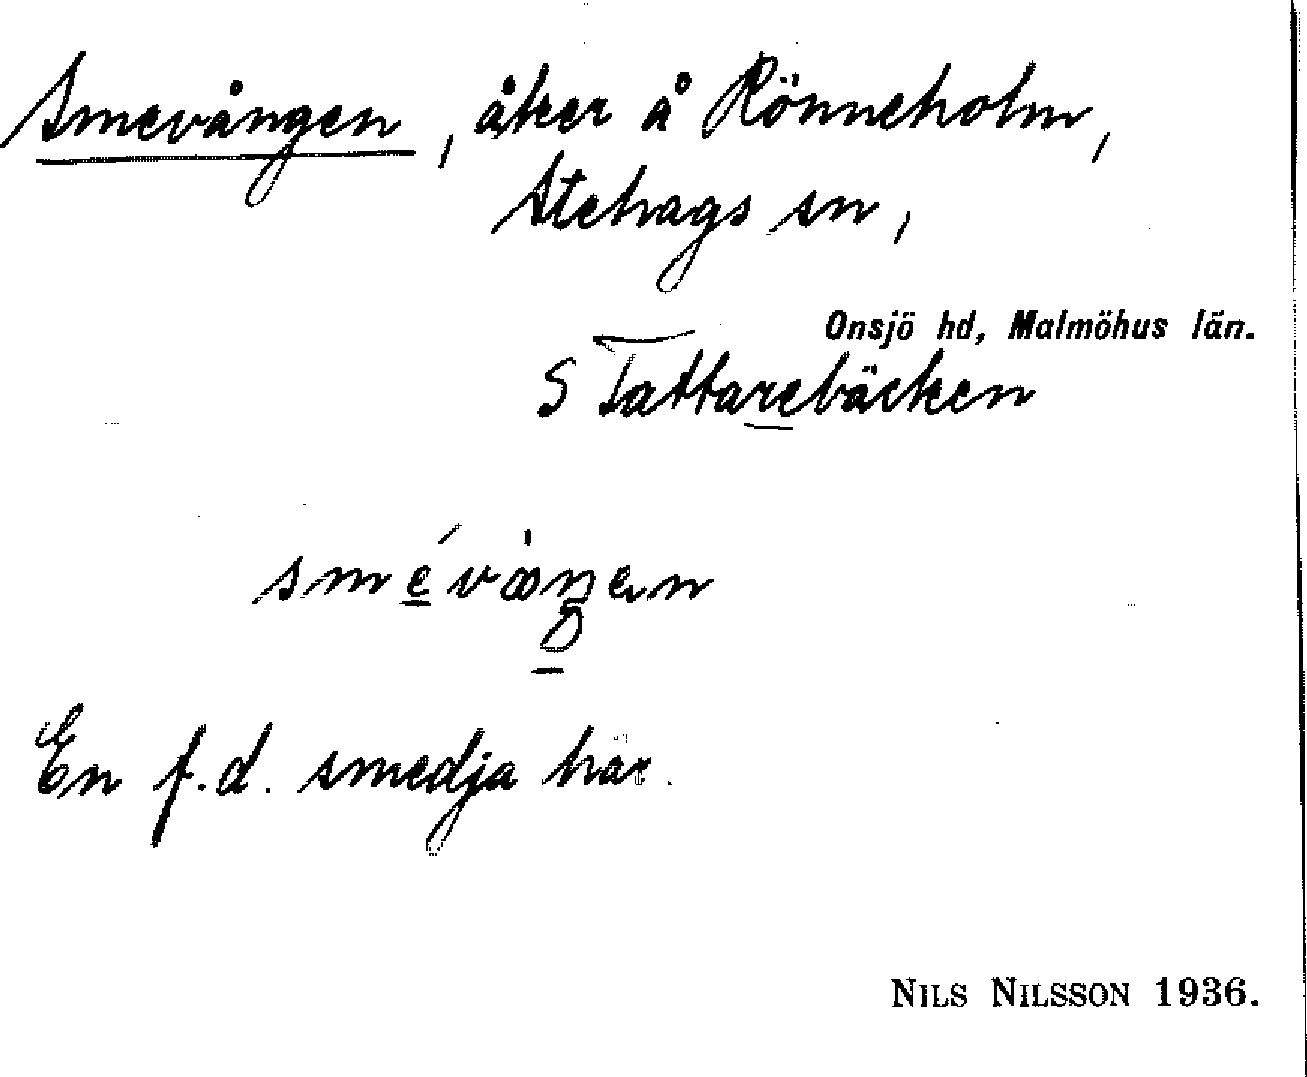 Smevången, åker å Rönneholm,
Stehags sn,
Onsjö hd, Malmöhus län.
S Tattarebäcken
En f.d. smedja här.
NILS NILSSON 1936.